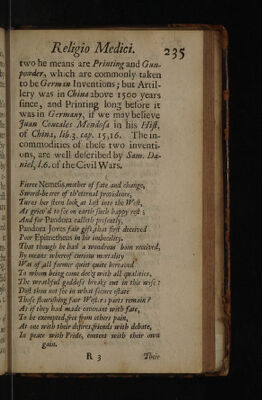 Religio Medici. 235
two he means are Printing and Gun-
powder, which are commonly taken
to be German Inventions; but Artil-
lery was in China above 1500 years
since, and Printing long before it
was in Germany, if we may believe
Juan Conzales Mendosa in his Hist,
of China, lib.3. cap. 15,16. The in-
commodities of these two inventi-
ons, are well described by Sam. Da-
niel, l.6. of the Civil Wars.
Fierce Nemesis, mother of fate and change,
Sword-bearer of th'eternal providence,
Turns her stern look at last into the West,
As griev'd to see on earth such happy rest;
And for Pandora calleth presently,
Pandora Joves fair gift, that first deceived
Poor Epimetheus in his imbecility.
That though he had a wondrous boon received,
By means whereof curious mortality
Was of all former quiet quite bereaved
To whom being come deckt with all qualities,
The wrathful goddess breaks out in this wise:
Dost thou not see in what secure estate
Those flourishing fair Western parts remain?
As if they had made covenant with fate,
To be exempted, free from others pain,
At one with their desires, friends with debate,
In peace with Pride, content with their own
gain.
R 3 Their